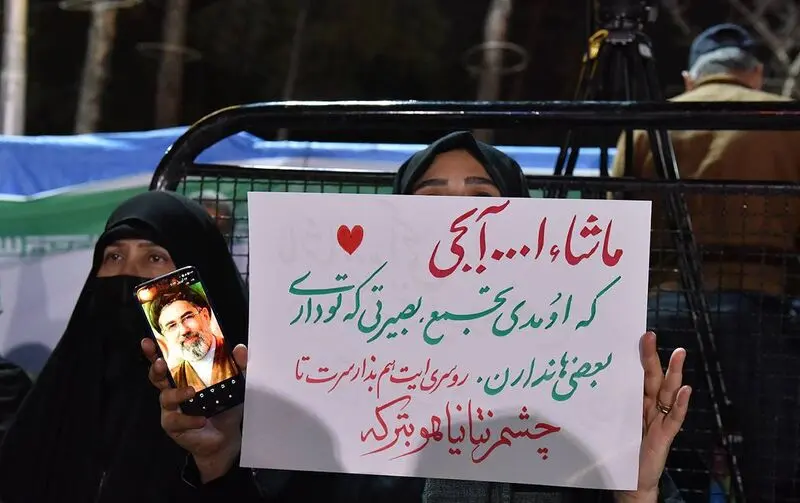 ماشاء ا... آبجی
که اومدی تجمع. بصیرتی که تو داری
بعضی‌ها ندارن. روسری ایت هم بذار سرت تا
چشم نتانیاهو بترکه